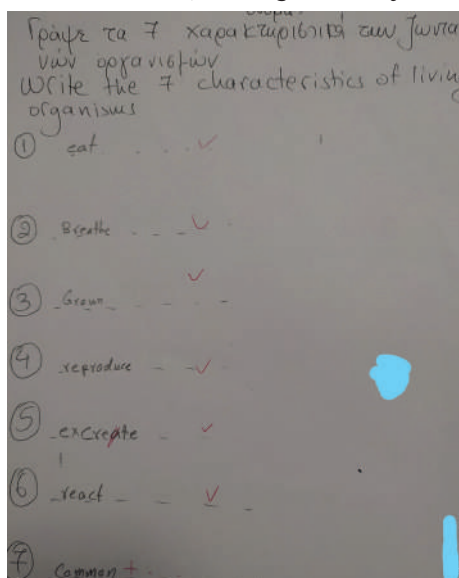 Γράψε τα 7 χαρακτηριστικά των ζωντα
νών οργανισμών
Write the 7 characteristics of living
organisms
① eat
② Breathe
③ Grown
④ reproduce
⑤ excreate
⑥ react
⑦ Common